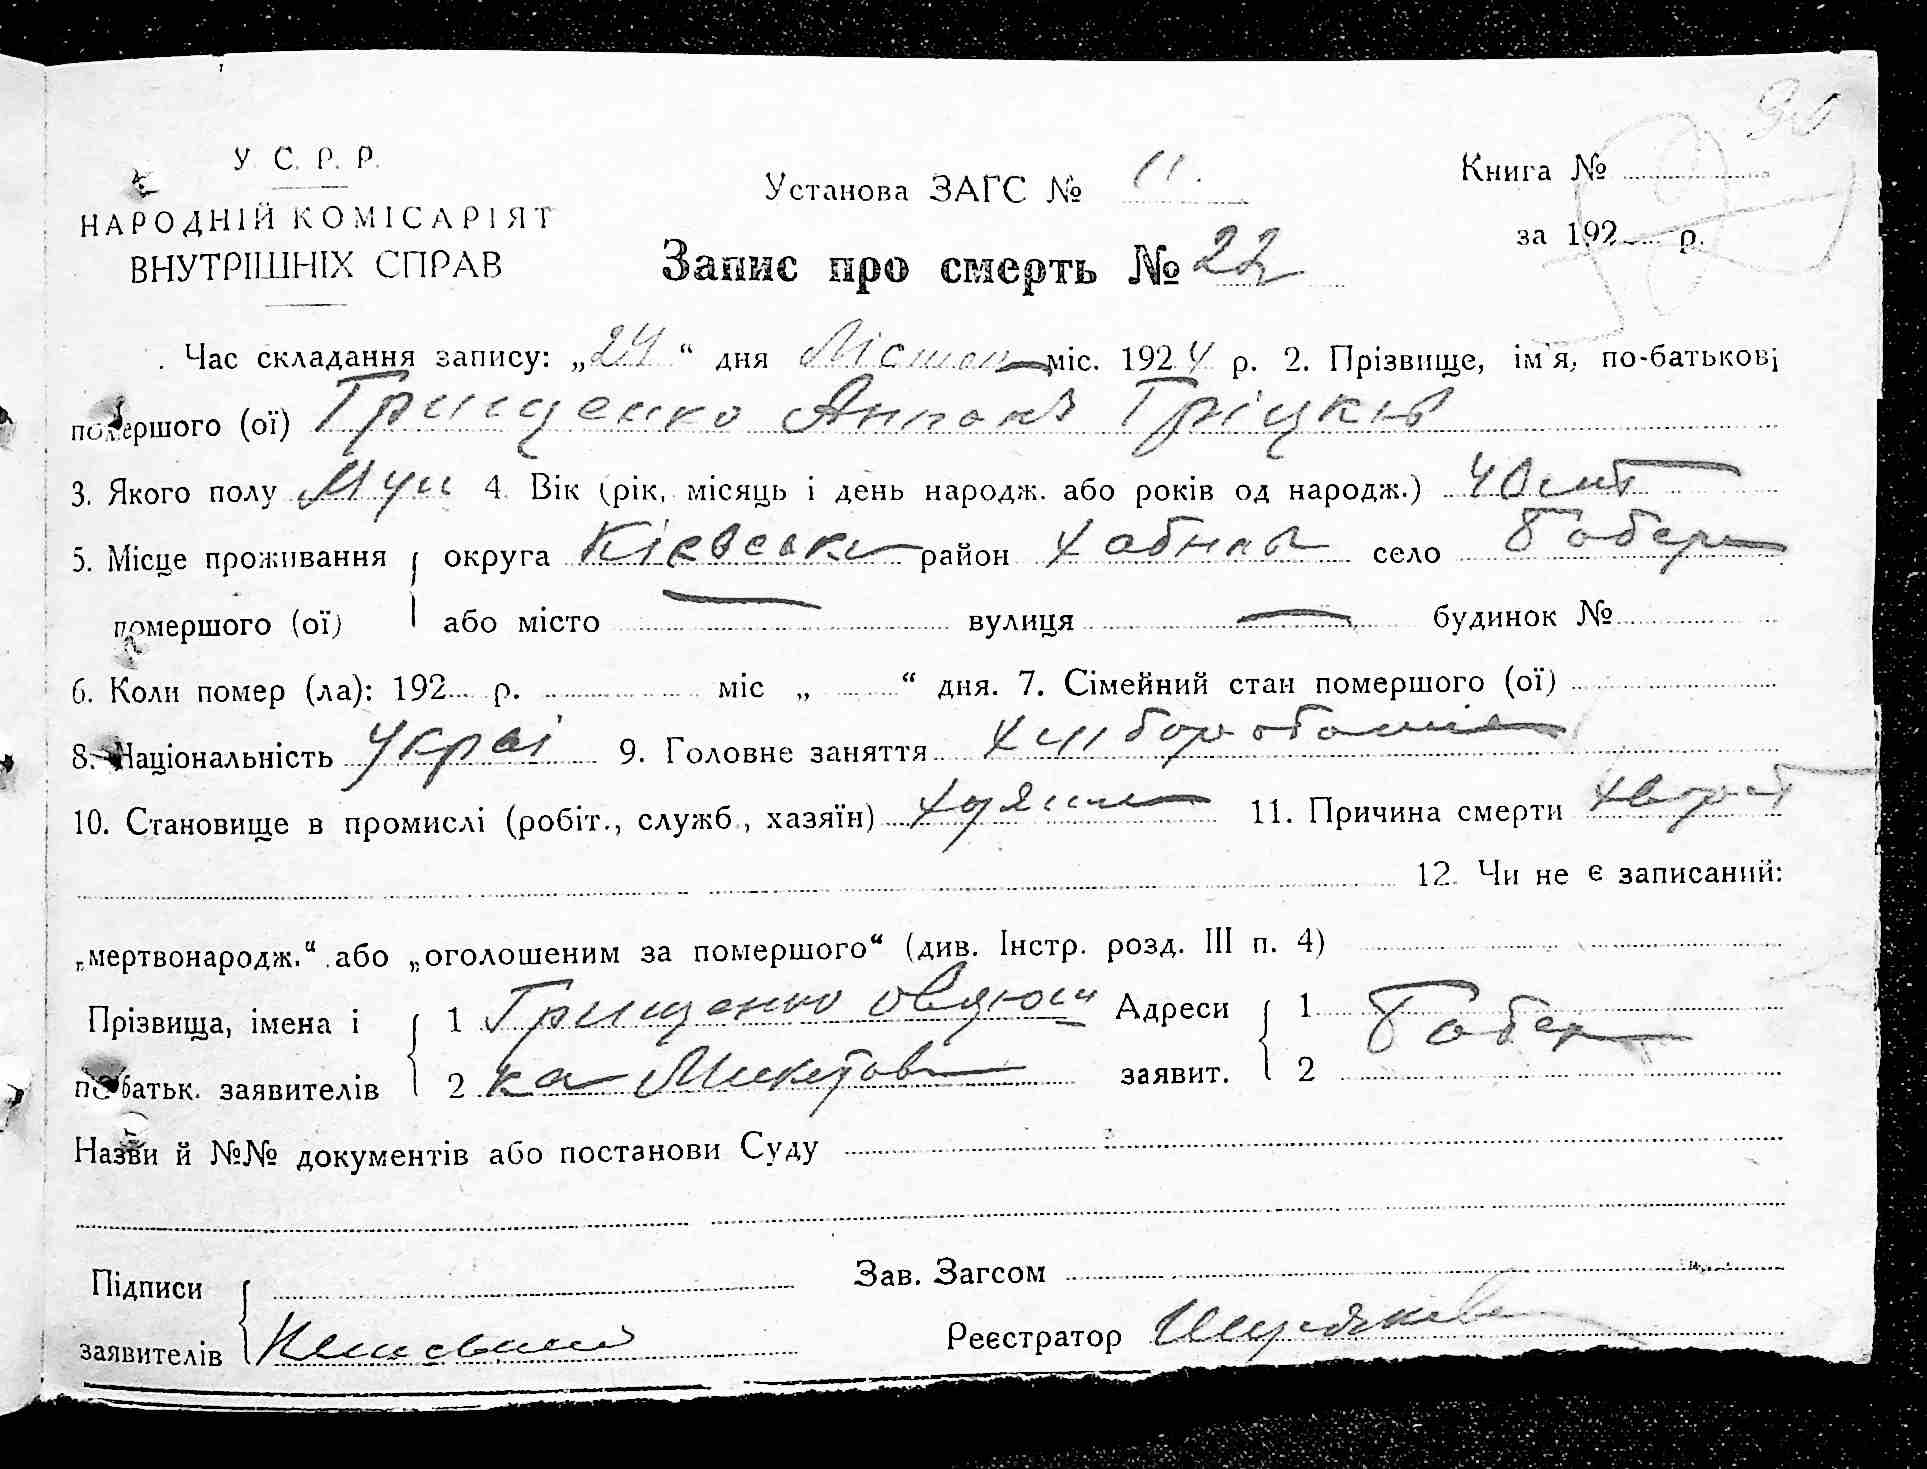 90
У. С. Р. Р.
НАРОДНІЙ КОМІСАРІЯТ
ВНУТРІШНІХ СПРАВ
Установа ЗАГС № 11.
Книга №
за 192 р.
Запис про смерть № 22
Час складання запису: „24“ дня міс. 1924 р. 2. Прізвище, ім'я, по-батькові
помершого (ої) Грищенко Антонъ Гріцків
3. Якого полу Муж 4. Вік (рік, місяць і день народж. або років од народж.) 40 літ
5. Місце проживання помершого (ої) округа Кієвська район Хабны село Бобер
або місто — вулиця — будинок №
6. Коли помер (ла): 192 р. міс „ “ дня. 7. Сімейний стан помершого (ої)
8. Національність Украі 9. Головне заняття
10. Становище в промислі (робіт., служб., хазяїн) 11. Причина смерти
12. Чи не є записаний:
„мертвонародж.“ або „оголошеним за помершого“ (див. Інстр. розд. III п. 4)
Прізвища, імена і по батьк. заявителів 1 Грищенко Адреси заявит. 1 Бобер
2 2
Назви й №№ документів або постанови Суду
Підписи заявителів
Зав. Загсом
Реєстратор